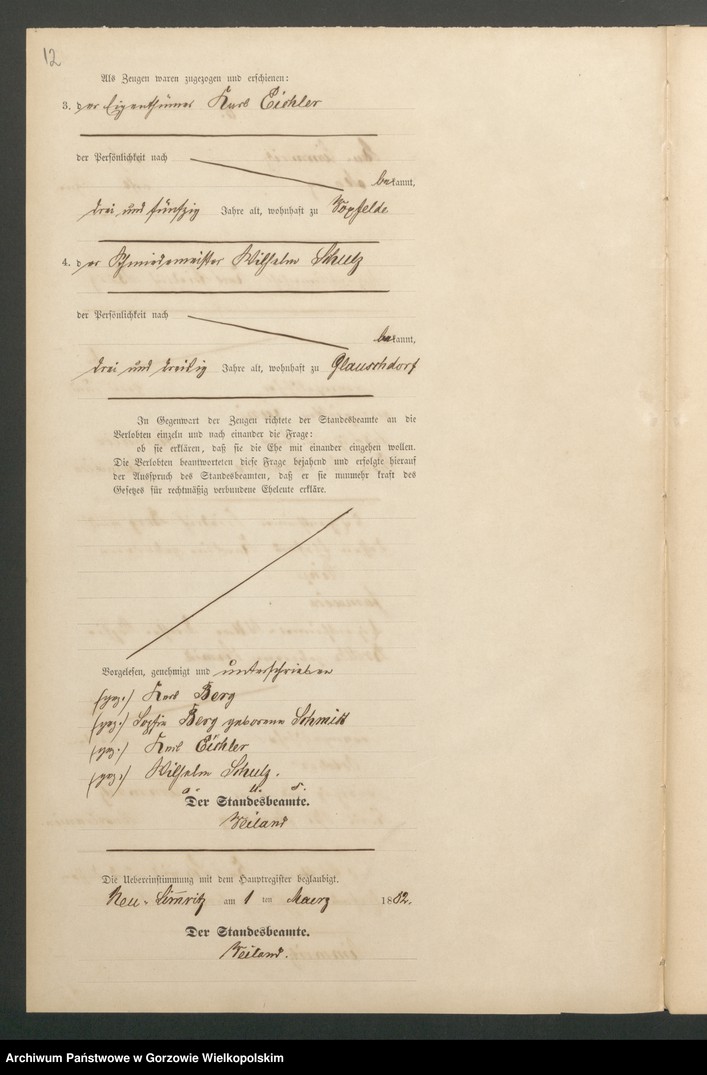 12
Als Zeugen waren zugezogen und erschienen:
3. der Eigenthümer Karl Eichler
der Persönlichkeit nach
bekannt,
drei und fünfzig Jahre alt, wohnhaft zu
4. der Schmiedemeister Wilhelm Schulz
der Persönlichkeit nach
bekannt,
drei und dreißig Jahre alt, wohnhaft zu Glauschdorf
In Gegenwart der Zeugen richtete der Standesbeamte an die
Verlobten einzeln und nach einander die Frage:
ob sie erklären, daß sie die Ehe mit einander eingehen wollen.
Die Verlobten beantworteten diese Frage bejahend und erfolgte hierauf
der Ausspruch des Standesbeamten, daß er sie nunmehr kraft des
Gesetzes für rechtmäßig verbundene Eheleute erkläre.
Vorgelesen, genehmigt und unterschrieben
(gez.) Karl Berg
(gez.) Sophie Berg geborene Schmidt
(gez.) Karl Eichler
(gez.) Wilhelm Schulz.
Der Standesbeamte.
Weiland
Die Uebereinstimmung mit dem Hauptregister beglaubigt.
Neu-Limritz am 1 ten Maerz 1882.
Der Standesbeamte.
Weiland.
Archiwum Państwowe w Gorzowie Wielkopolskim